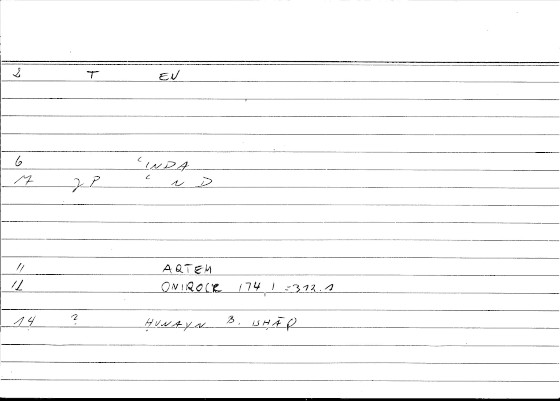 2 T EN
6 ʿINDA
17 P ʿ N D
11 ARTEM
12 ONIROCR 174,1 = 312.1
14 ? ḤUNAYN B. ISḤĀQ